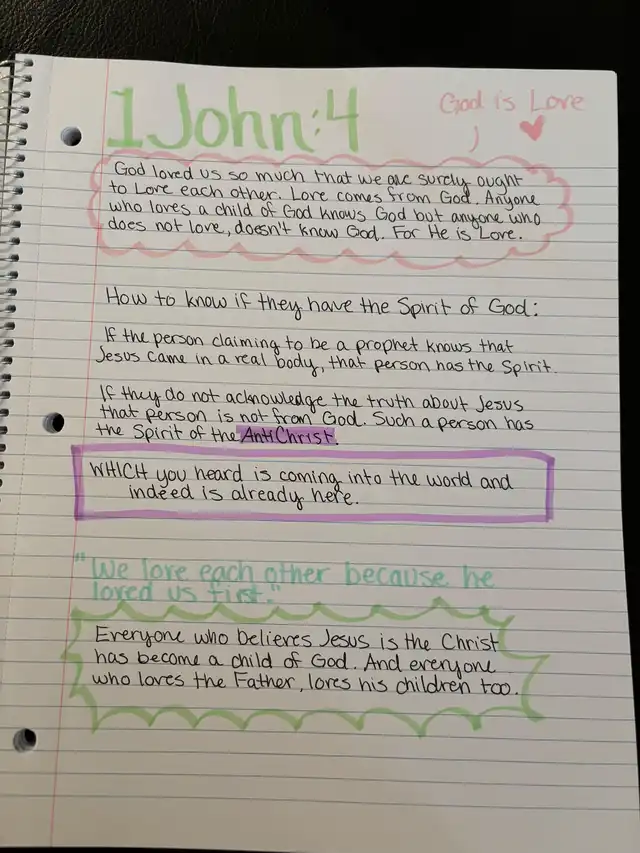 1 John:4
God is Love
God loved us so much that we are surely ought
to Love each other. Love comes from God. Anyone
who loves a child of God knows God but anyone who
does not love, doesn't know God. For He is Love.
How to know if they have the Spirit of God:
If the person claiming to be a prophet knows that
Jesus came in a real body, that person has the Spirit.
If they do not acknowledge the truth about Jesus
that person is not from God. Such a person has
the Spirit of the AntiChrist.
WHICH you heard is coming into the world and
indeed is already here.
"We love each other because he
loved us first."
Everyone who believes Jesus is the Christ
has become a child of God. And everyone
who loves the Father, loves his children too.